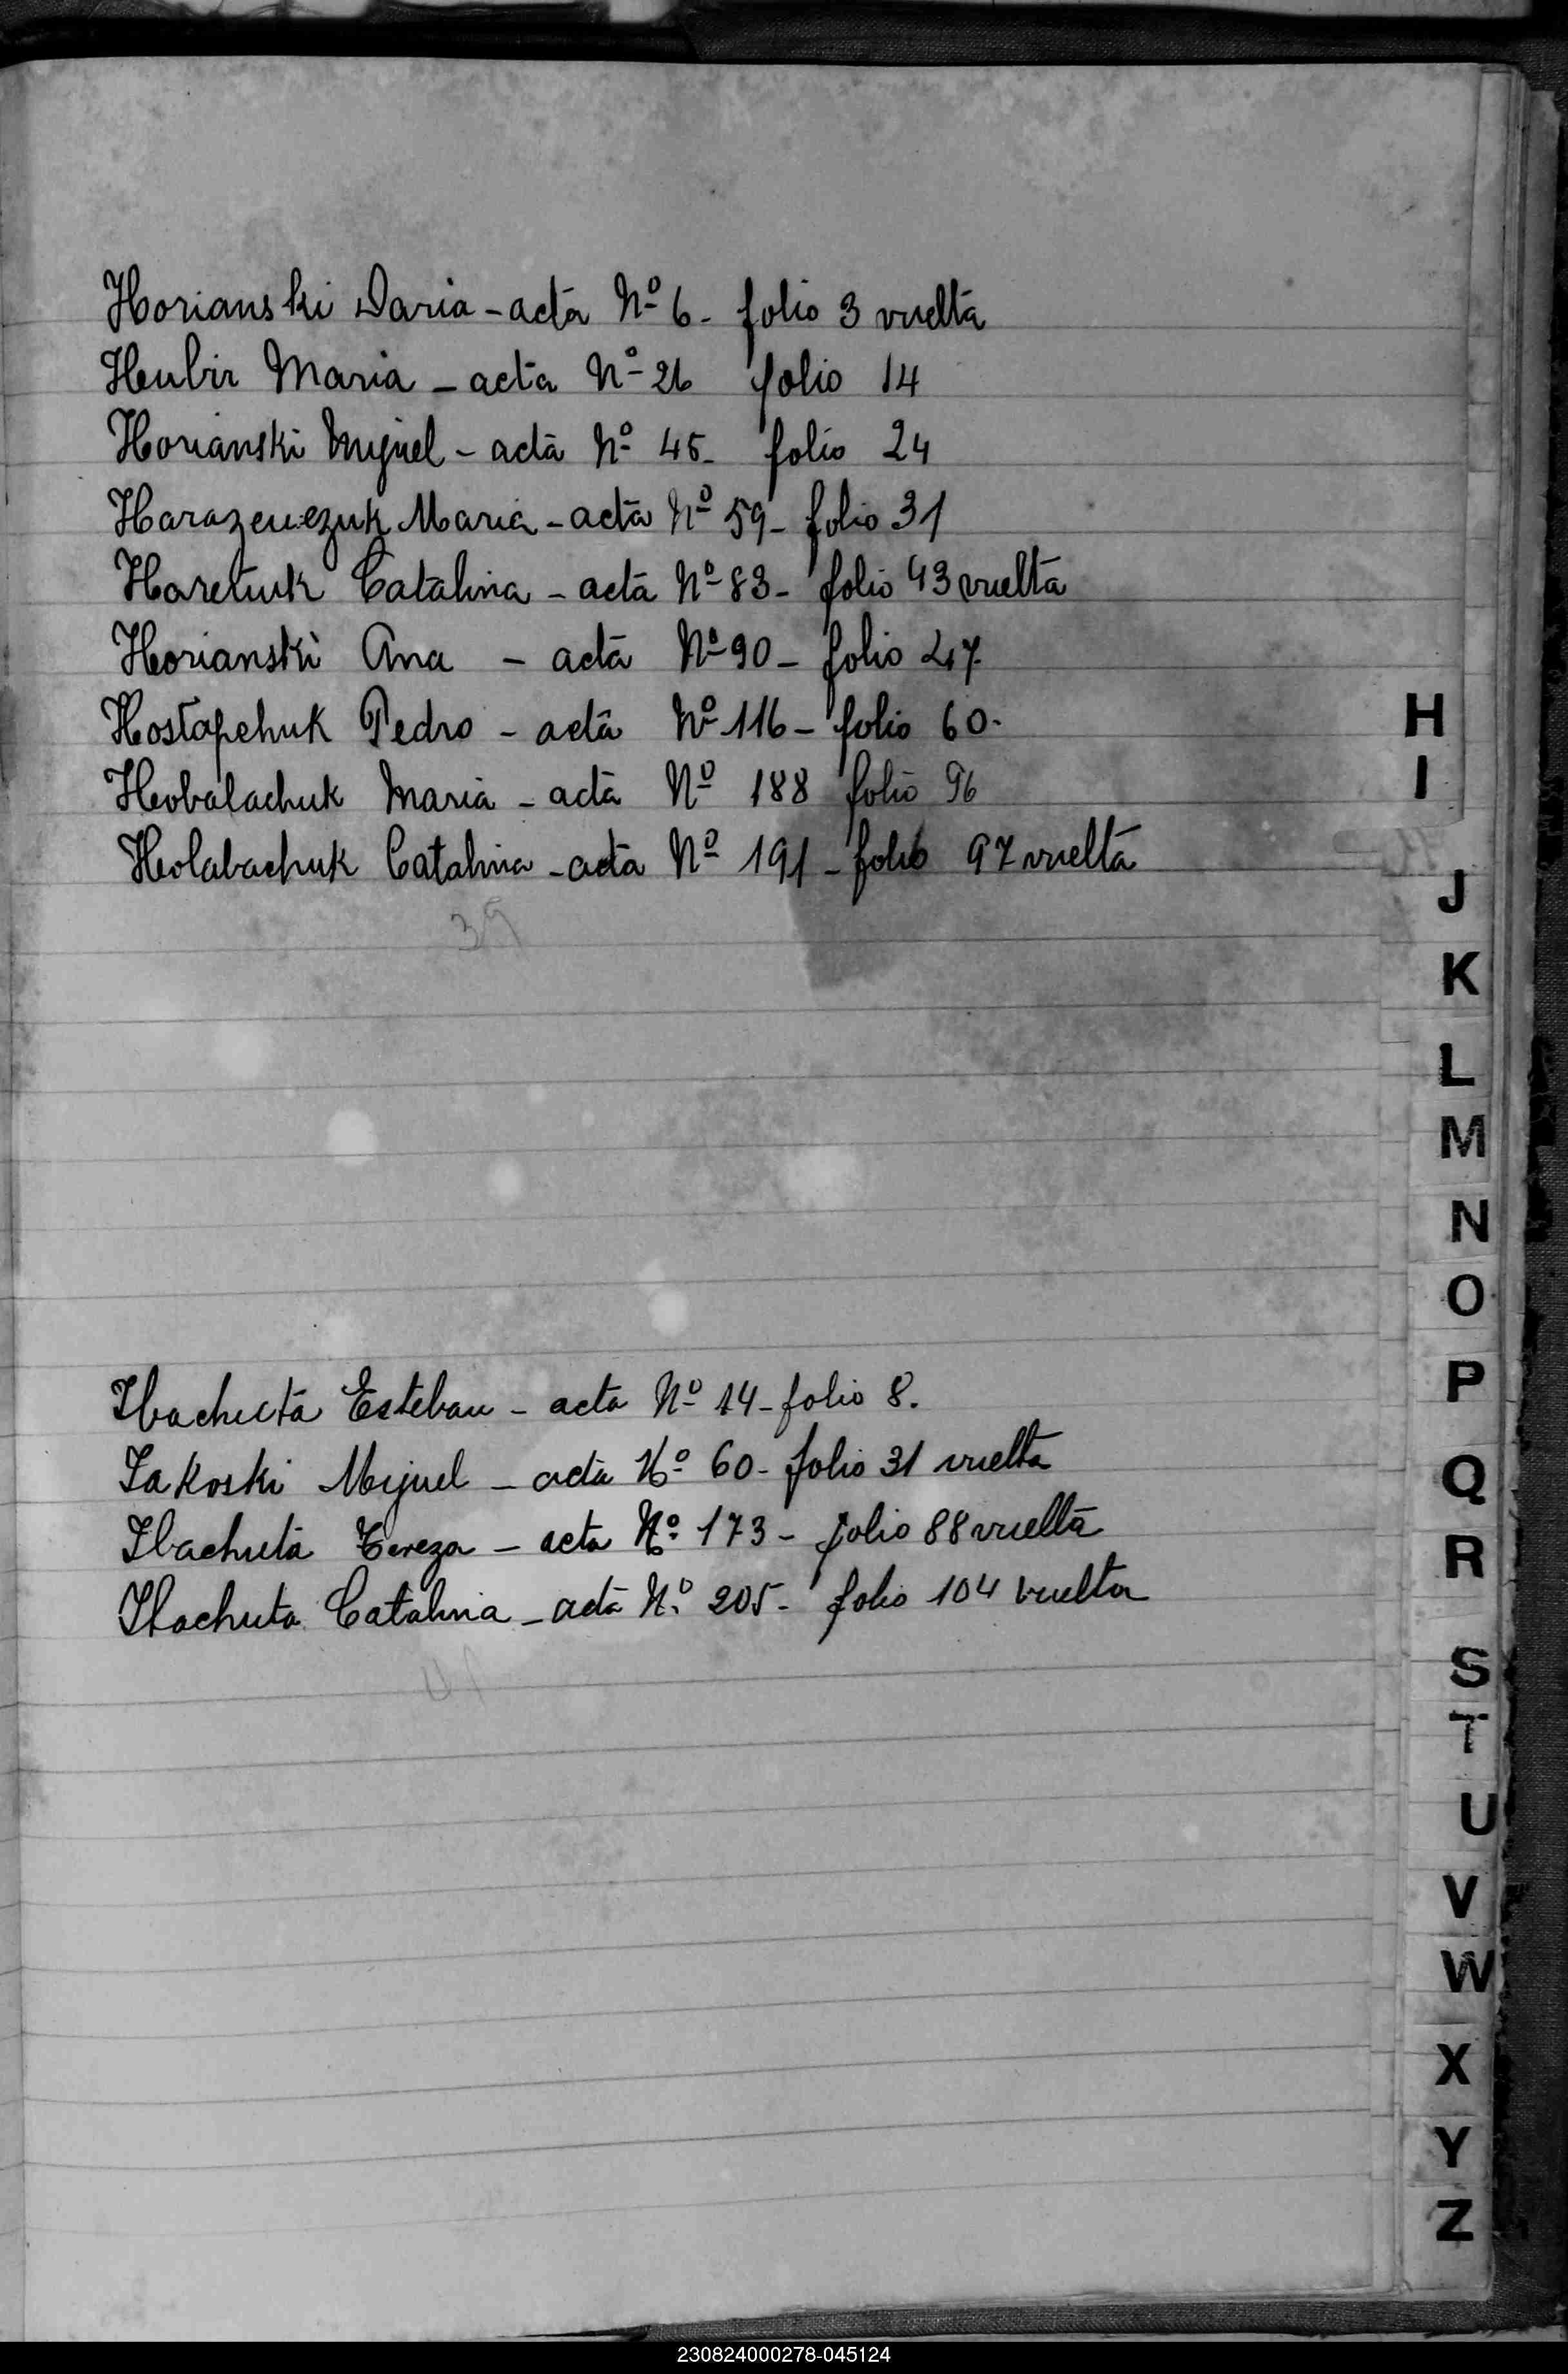 Horianski Daria - acta Nº 6 - folio 3 vuelta
Hubir Maria - acta Nº 26 folio 14
Horianski Miguel - acta Nº 45 - folio 24
Harazeuczuk Maria - acta Nº 59 - folio 31
Haretiuk Catalina - acta Nº 83 - folio 43 vuelta
Horianski Ana - acta Nº 90 - folio 47.
Hostapchuk Pedro - acta Nº 116 - folio 60.
Hobalachuk Maria - acta Nº 188 folio 96
Holabachuk Catalina - acta Nº 191 - folio 97 vuelta
39
Ibachuta Esteban - acta Nº 14 - folio 8.
Iakoski Miguel - acta Nº 60 - folio 31 vuelta
Ibachuta Tereza - acta Nº 173 - folio 88 vuelta
Ibachuta Catalina - acta Nº 205 - folio 104 vuelta
H
I
J
K
L
M
N
O
P
Q
R
S
T
U
V
W
X
Y
Z
230824000278-045124